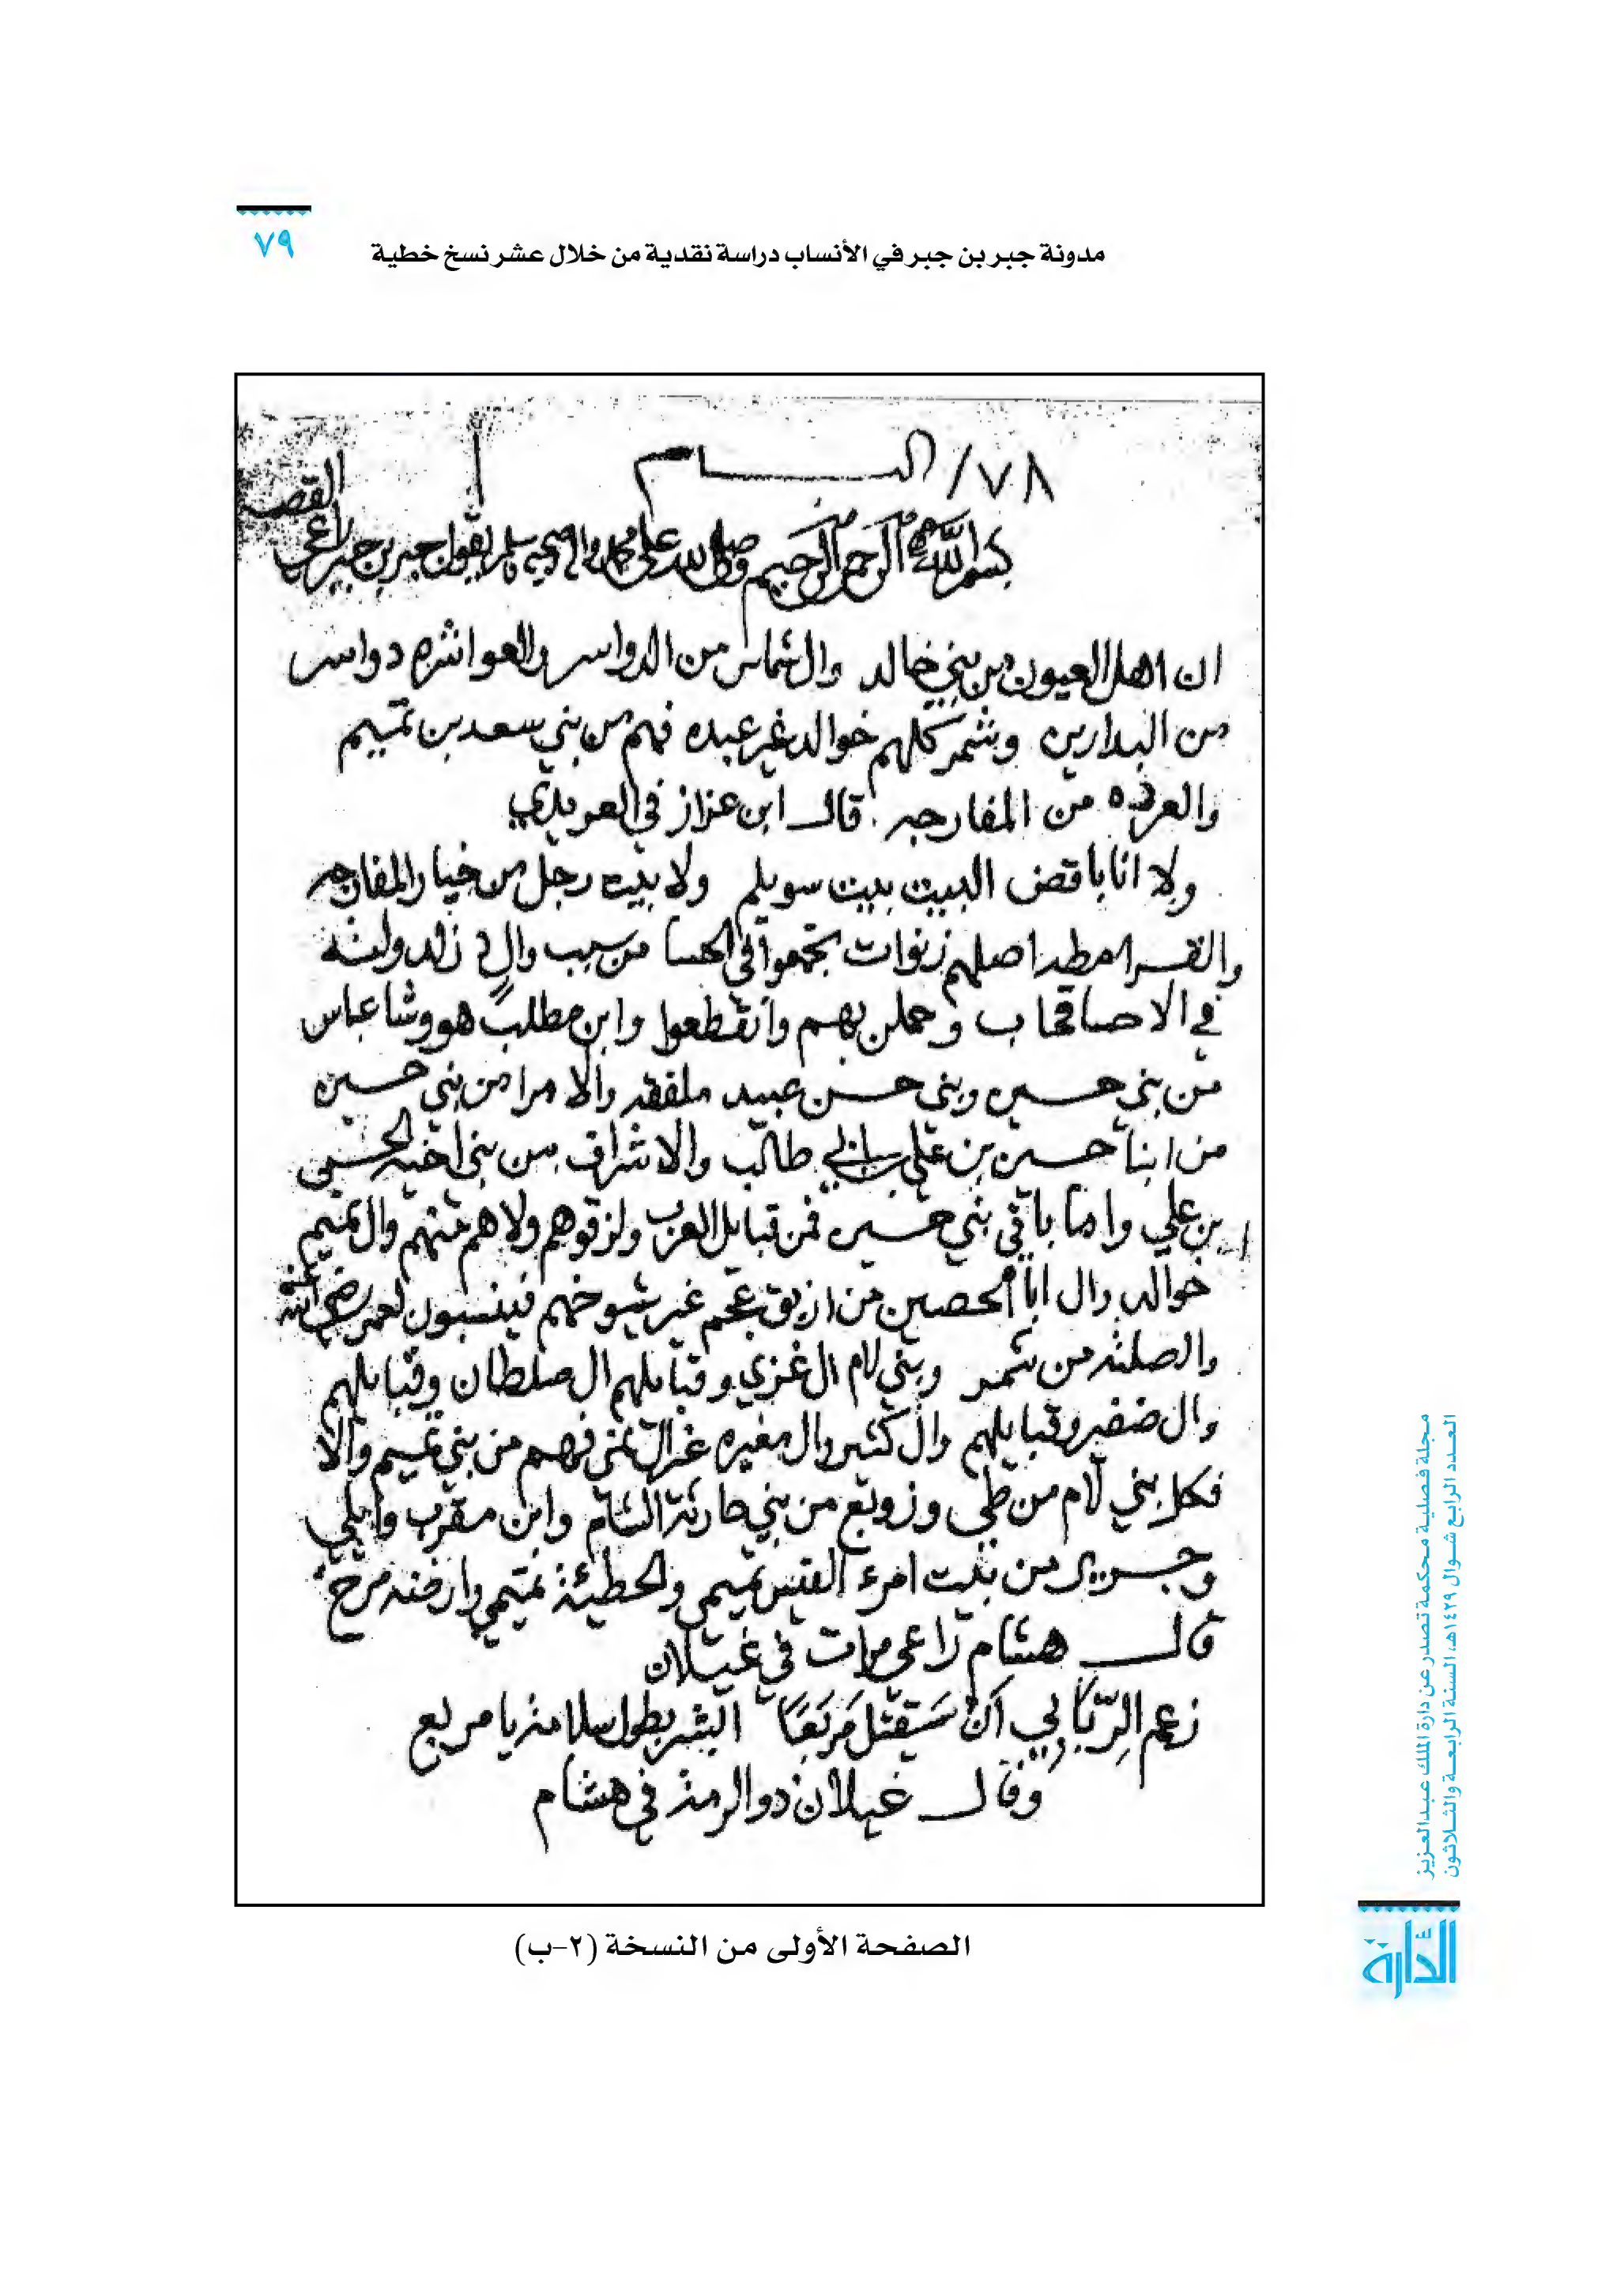 مدونة جبر بن جبر في الأنساب دراسة نقدية من خلال عشر نسخ خطية
٧٩
٧٨/ البسام
القصـ
بسم الله الرحمن الرحيم وصلى الله على محمد واله وصحبه وسلم يقول جبر بن جبر راعي
ان اهل العيون من بني خالد وال شماس من الدواسر والعواشره دواسر
من البدارين وشمر كلهم خوالد غير عبده فهم من بني سعد بن تميم
والعرده من المفارجه . قال ابن عزاز في العريدي
ولا انا باقض البيت بيت سويلم ولا بيت رجل من خيار المفارجه
اصلهم زنوات تجمعوا في الحسا من سبب وال
في الاحسا قحاب وحملن بهم وانقطعوا وابن مطلب هو وشا عباس
من بني حسين وبني حسن عبيد ملفقه والامرا من بني حسين
من ابنا حسين بن علي بن ابي طالب والاشراف من بني اخيه الحسن
بن علي واما باقي بني حسين فمن قبايل العرب ولزقوهم ولا هم منهم وال تميم
خوالد وال ابا الحصين من ازيق عجم غير شيوخهم فينسبون لعمر رضي الله
والصلته من شمر وبني لام ال غزي وقبايلهم ال صلطان وقبايلهم
وال ضفير وقبايلهم وال كثير وال مغيره فهم من بني تميم والا
فكل بني لام من طي وزوبع من بني حارثة الشام وابن مقرب وايلي
وجرير من بيت امرء القيس تميمي والحطيئة تميمي
قال هشام راعي مرات في غيلان
زعم الربابي ان سيقتل مربعا ابشر بطول سلامة يا مربع
وقال غيلان ذو الرمة في هشام
الصفحة الأولى من النسخة (٢-ب)
مجلة فصلية محكمة تصدر عن دارة الملك عبدالعزيز
العدد الرابع شوال ١٤٢٩هـ، السنة الرابعة والثلاثون
الدارة